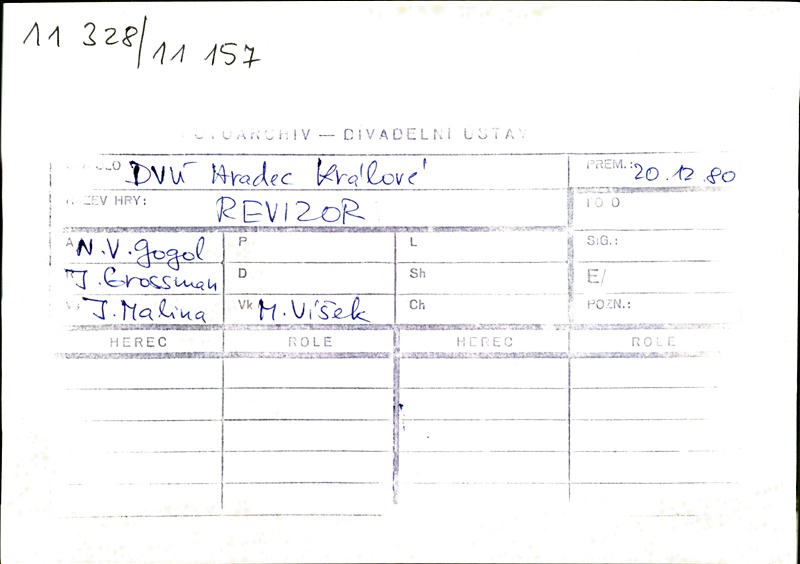 11 328/11 157
FOTOARCHIV — DIVADELNÍ ÚSTAV
DVÚ Hradec Králové PREM.: 20.12.80
NÁZEV HRY: REVIZOR
A N.V. Gogol P L SIG.:
J. Grossman D Sh E/
J. Malina Vk M. Víšek Ch POZN.:
HEREC ROLE HEREC ROLE